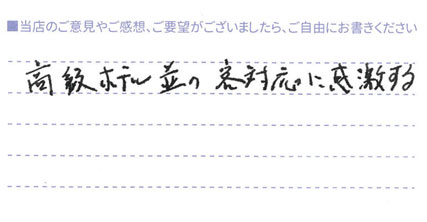 ■当店のご意見やご感想、ご要望がございましたら、ご自由にお書きください
高級ホテル並の客対応に感激する